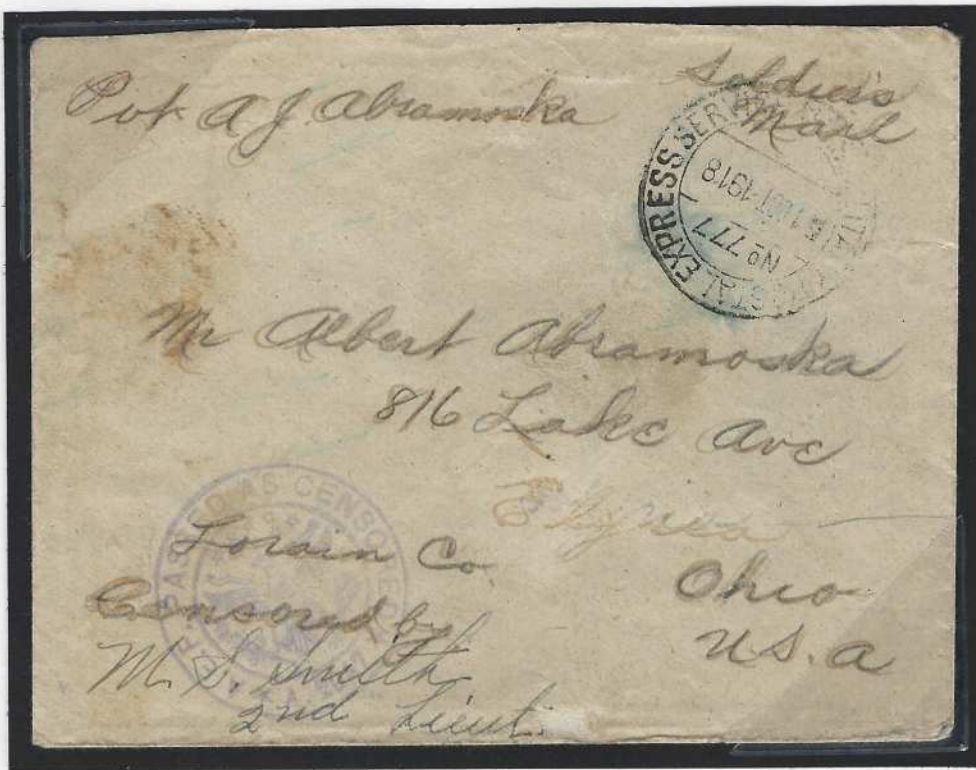 Pvt A J Abramoska
Soldier's
Mail
POSTAL EXPRESS SERVICE
1918
No 777
Mr Albert Abramoska
816 Lake Ave
Elyria
Lorain Co.
Ohio
U.S.A
PASSED AS CENSORED
Censored by
M. S. Smith
2nd Lieut.